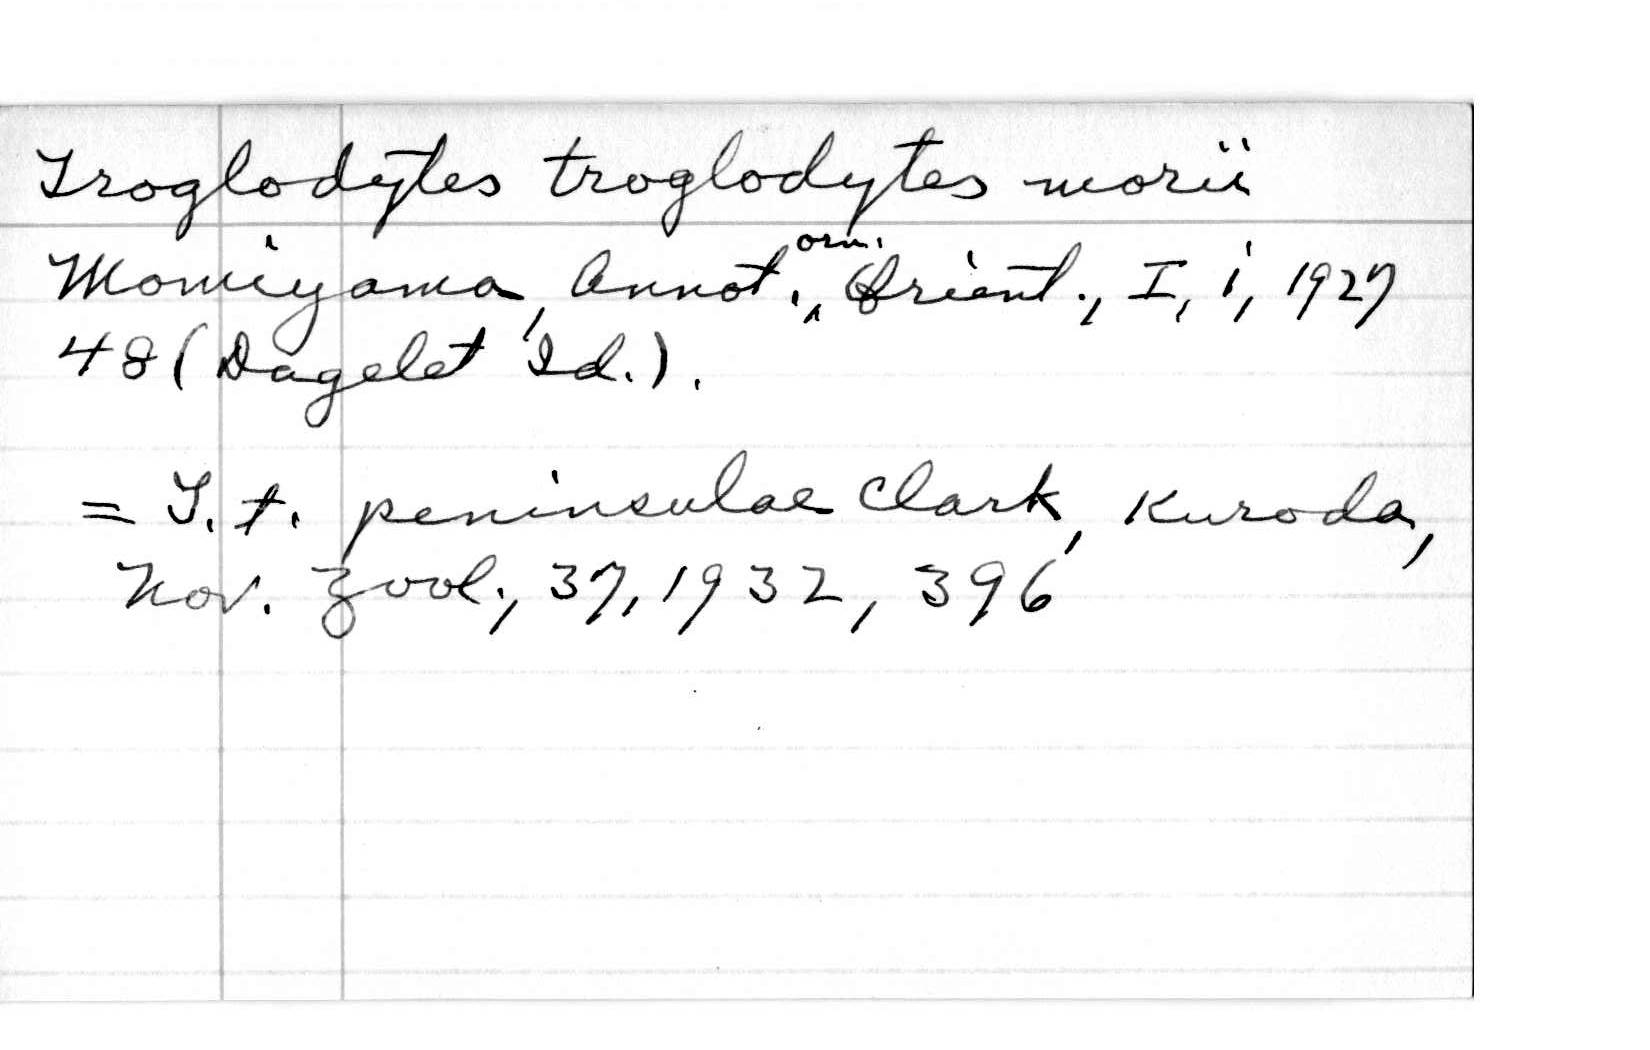 Troglodytes troglodytes morii
Momiyama, Annot. orn. Orient., I, i, 1927
48 (Dagelet Id.).
= T. t. peninsulae Clark, Kuroda,
Nov. Zool., 37, 1932, 396